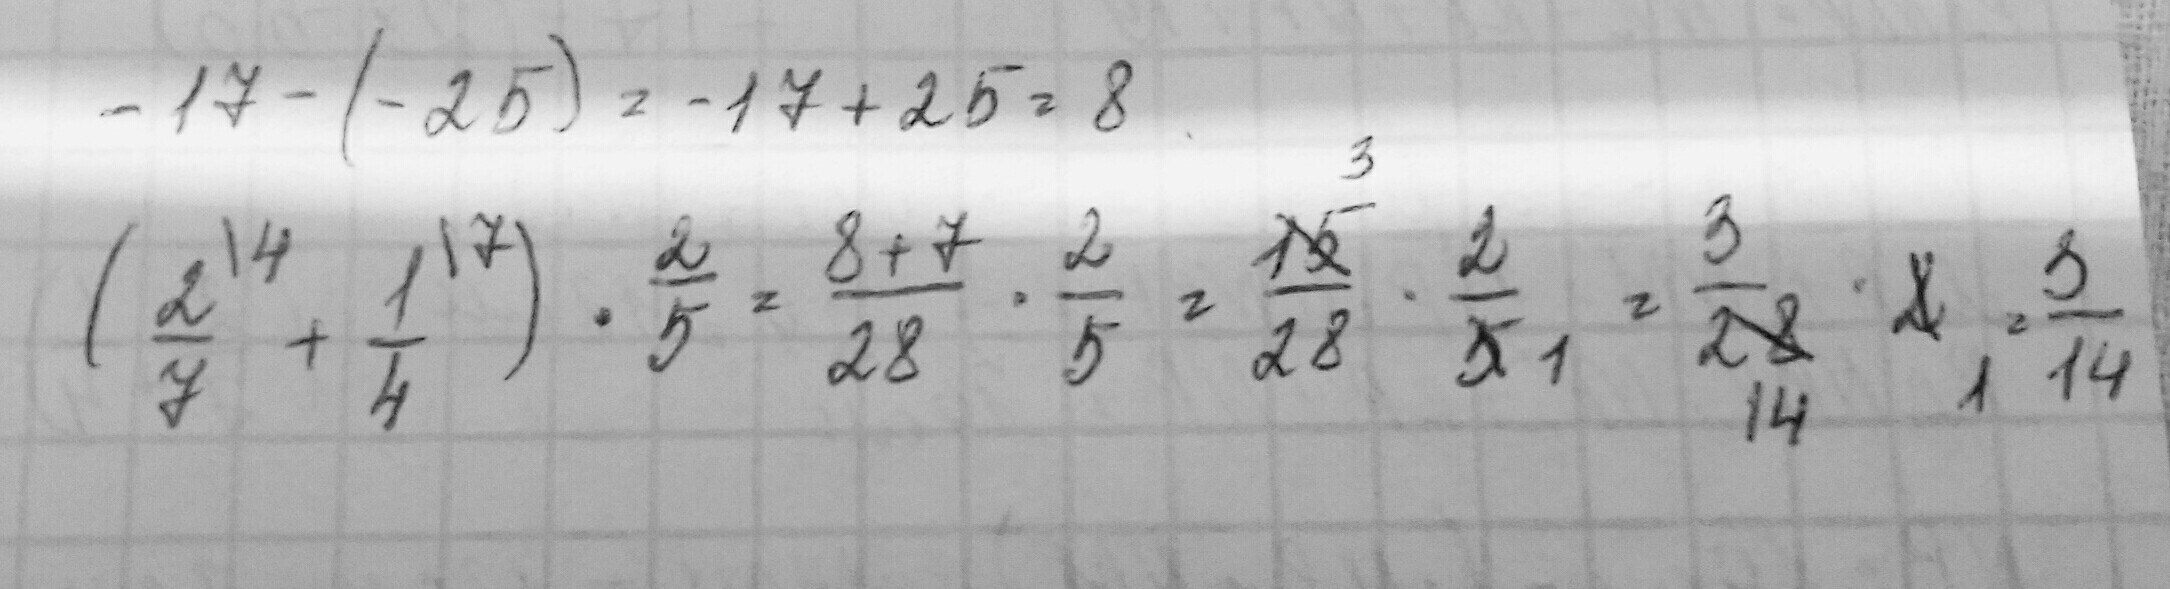 -17-(-25)=-17+25=8
(2/7\4 + 1/4\7) · 2/5 = 8+7/28 · 2/5 = 15 3/28 · 2/5 1 = 3/28 14 · 2 1 = 3/14